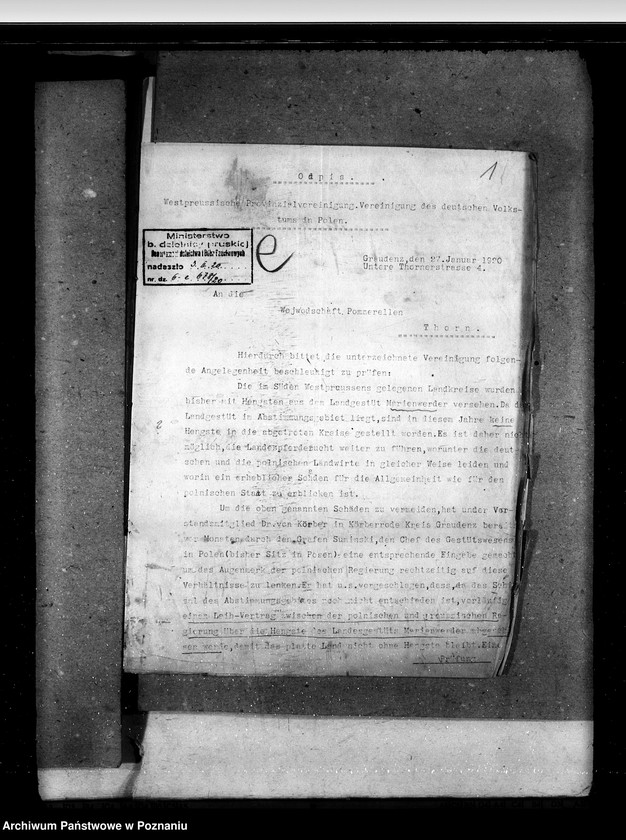 1
Odpis.
Westpreussische Provinzialvereinigung.Vereinigung des deutschen Volks-
tums in Polen.
Ministerstwo
b. dzielnicy pruskiej
nadeszło
nr. dz.
e
Graudenz,den 27.Januar 1920
Untere Thornerstrasse 4.
An die
Wojwodschaft Pommerellen
Thorn.
Hierdurch bittet die unterzeichnete Vereinigung folgen-
de Angelegenheit beschleunigt zu prüfen:
Die im Süden Westpreussens gelegenen Landkreise wurden
bisher mit Hengsten aus dem Landgestüt Marienwerder versehen.Da
Landgestüt im Abstimmungsgebiet liegt,sind in diesem Jahre keine
Hengste in die abgetreten Kreise gestellt worden.Es ist daher
möglich,die Landespferdezucht weiter zu führen,worunter die deut-
schen und die polnischen Landwirte in gleicher Weise leiden und
worin ein erheblicher Schaden für die Allgemeinheit wie für den
polnischen Staat zu erblicken ist.
Um die oben genannten Schäden zu vermeiden,hat unser Vor-
standsmitglied Dr.von Körber in Körberrode Kreis Graudenz
vor Monaten durch den Grafen Suminski,den Chef des Gestütswesens
in Polen(bisher Sitz in Posen) eine entsprechende Eingabe
um das Augenmerk der polnischen Regierung rechtzeitig auf diese
Verhältnisse zu lenken.Er hat u.a.vorgeschlagen,dass,da das
des Abstimmungsgebietes noch nicht entschieden ist,vorläufig
einen Leih-Vertrag zwischen der polnischen und preussischen Re-
gierung über die Hengste des Landesgestüts Marienwerder
werde,damit das platte Land nicht ohne Hengste bleibt.Eine
Prüfung
Archiwum Państwowe w Poznaniu